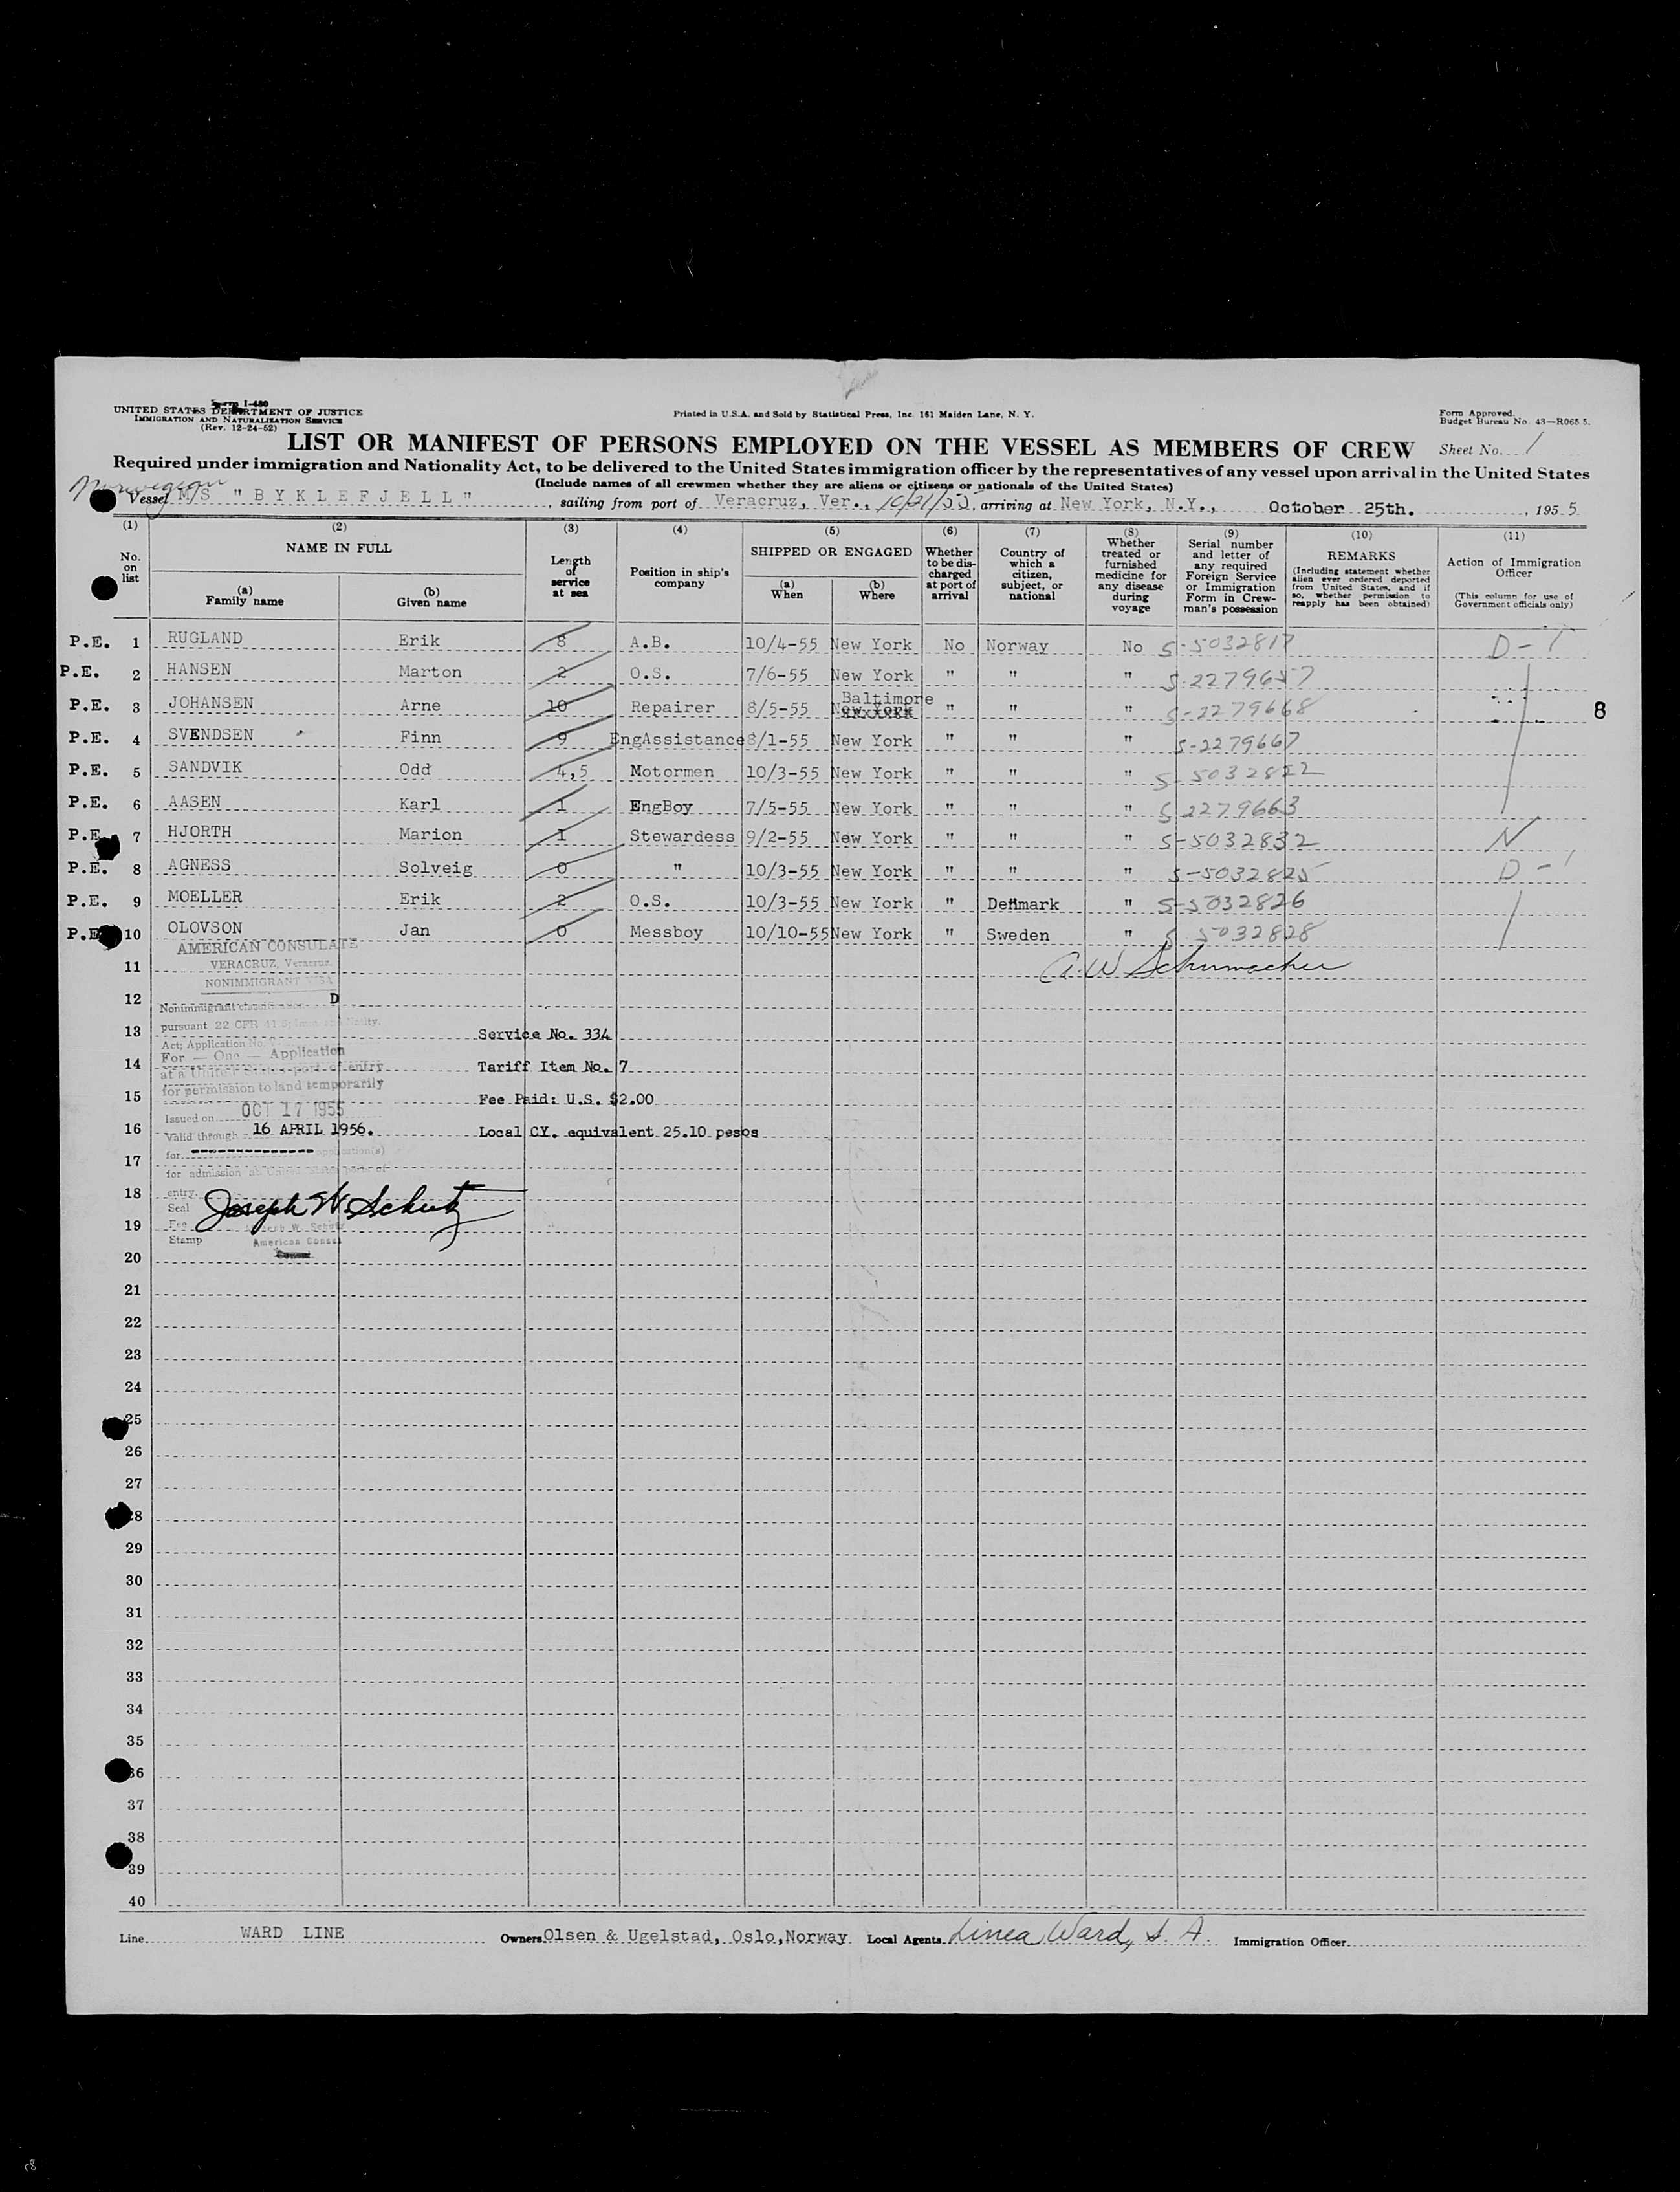 Form I-480
UNITED STATES DEPARTMENT OF JUSTICE
IMMIGRATION AND NATURALIZATION SERVICE
(Rev. 12-24-52)
Printed in U.S.A. and Sold by Statistical Press, Inc. 161 Maiden Lane, N. Y.
Form Approved.
Budget Bureau No. 43—R065.5.
LIST OR MANIFEST OF PERSONS EMPLOYED ON THE VESSEL AS MEMBERS OF CREW
Sheet No. 1
Required under immigration and Nationality Act, to be delivered to the United States immigration officer by the representatives of any vessel upon arrival in the United States
(Include names of all crewmen whether they are aliens or citizens or nationals of the United States)
Norwegian
Vessel M/S " B Y K L E F J E L L " , sailing from port of Veracruz, Ver., 10/21/55, arriving at New York, N.Y., October 25th. , 195 5
(1) (2) (3) (4) (5) (6) (7) (8) (9) (10) (11)
No. on list
NAME IN FULL
(a) Family name
(b) Given name
Length of service at sea
Position in ship's company
SHIPPED OR ENGAGED
(a) When
(b) Where
Whether to be discharged at port of arrival
Country of which a citizen, subject, or national
Whether treated or furnished medicine for any disease during voyage
Serial number and letter of any required Foreign Service or Immigration Form in Crewman's possession
REMARKS
(Including statement whether alien ever ordered deported from United States, and if so, whether permission to reapply has been obtained)
Action of Immigration Officer
(This column for use of Government officials only)
P.E. 1 RUGLAND Erik 8 A.B. 10/4-55 New York No Norway No S-5032817 D-1
P.E. 2 HANSEN Marton 2 O.S. 7/6-55 New York " " " S-2279657
Baltimore
P.E. 3 JOHANSEN Arne 10 Repairer 8/5-55 New York " " " S-2279668 8
P.E. 4 SVENDSEN Finn 9 EngAssistance 8/1-55 New York " " " S-2279667
P.E. 5 SANDVIK Odd 4,5 Motormen 10/3-55 New York " " " S-5032822
P.E. 6 AASEN Karl 1 EngBoy 7/5-55 New York " " " S-2279663
P.E. 7 HJORTH Marion 1 Stewardess 9/2-55 New York " " " S-5032832 N
P.E. 8 AGNESS Solveig 0 " 10/3-55 New York " " " S-5032825 D-1
P.E. 9 MOELLER Erik 2 O.S. 10/3-55 New York " Denmark " S-5032826
P.E. 10 OLOVSON Jan 0 Messboy 10/10-55 New York " Sweden " S-5032828
AMERICAN CONSULATE
11 VERACRUZ, Veracruz. A. W. Schumacher
NONIMMIGRANT VISA
12 Nonimmigrant D
13 pursuant 22 CFR 41 Service No. 334
Act; Application No.
For — One — Application
14 at a United States port of entry Tariff Item No. 7
for permission to land temporarily
15 Fee Paid: U.S. $2.00
Issued on OCT 17 1955
16 Valid through 16 APRIL 1956. Local CY. equivalent 25.10 pesos
for application(s)
17
for admission
18 entry.
Seal Joseph W. Schutz
19 Fee Joseph W. Schutz
Stamp American Consul
20
21
22
23
24
25
26
27
28
29
30
31
32
33
34
35
36
37
38
39
40
Line WARD LINE Owners Olsen & Ugelstad, Oslo, Norway Local Agents Linea Ward, S. A. Immigration Officer